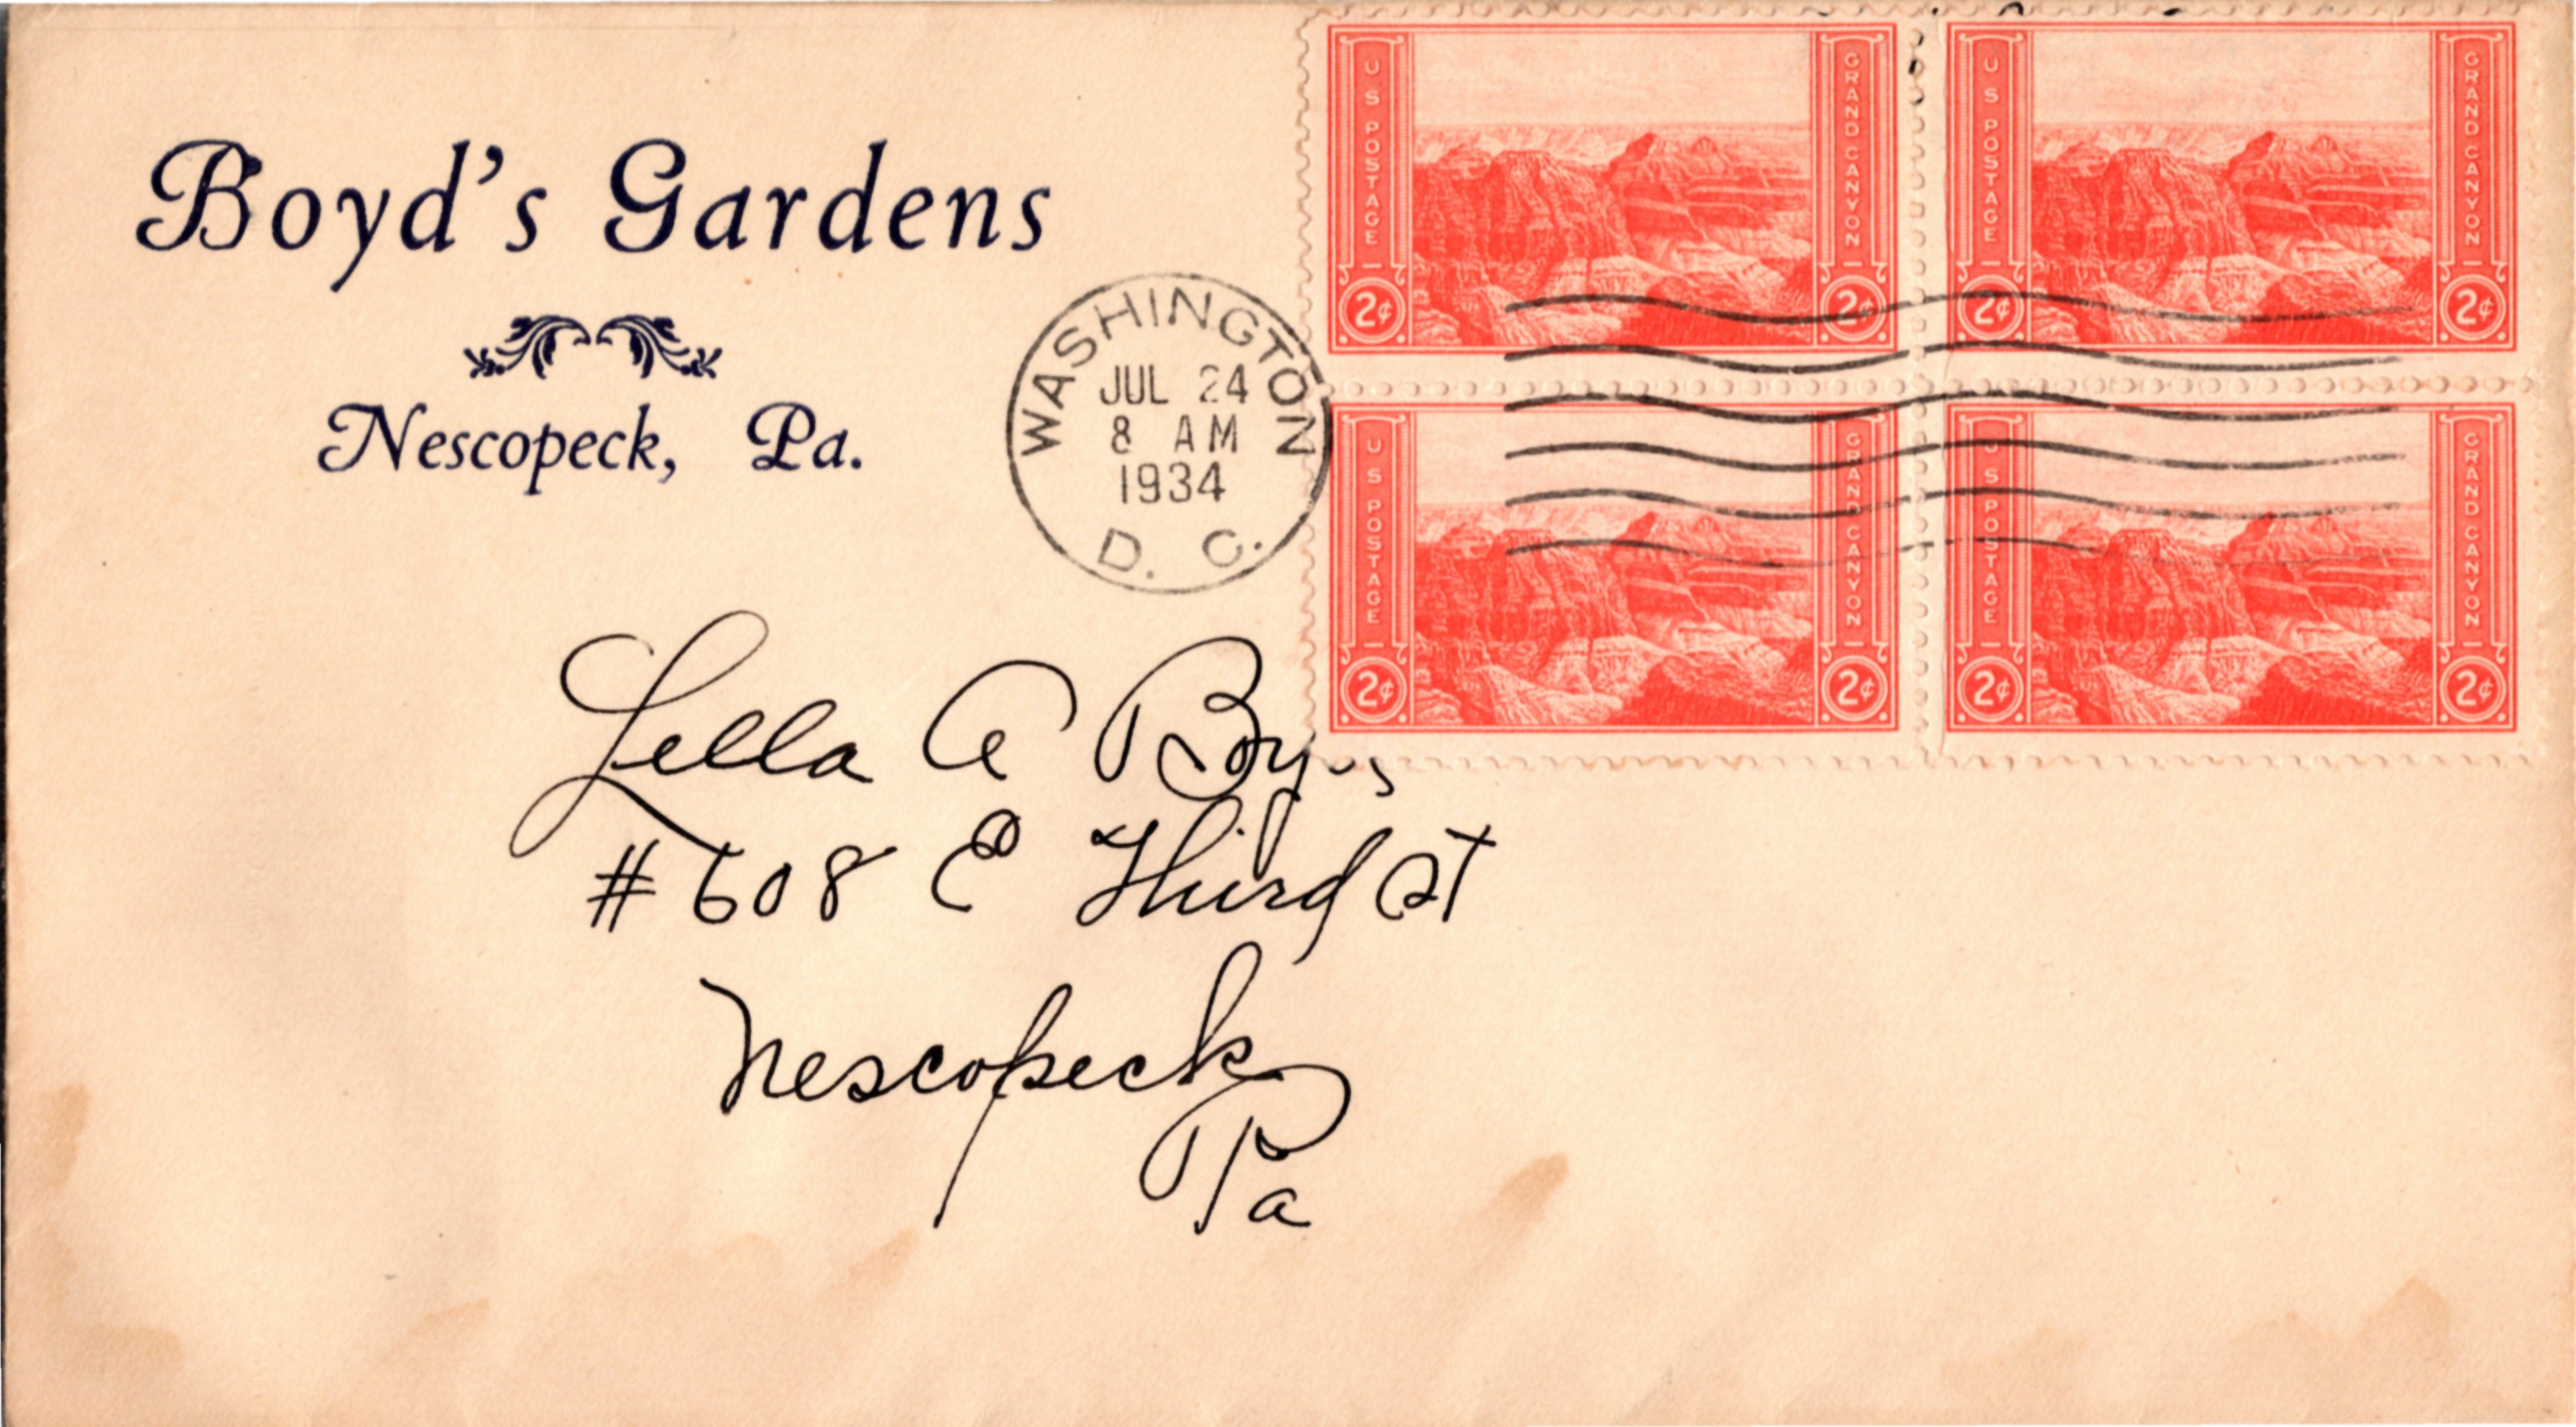 Boyd's Gardens
Nescopeck, Pa.
WASHINGTON
JUL 24
8 AM
1934
D. C.
U S POSTAGE
GRAND CANYON
2¢ 2¢
U S POSTAGE
GRAND CANYON
2¢ 2¢
U S POSTAGE
GRAND CANYON
2¢ 2¢
U S POSTAGE
GRAND CANYON
2¢ 2¢
Lella A
#608 E Third St
Nescopeck
Pa